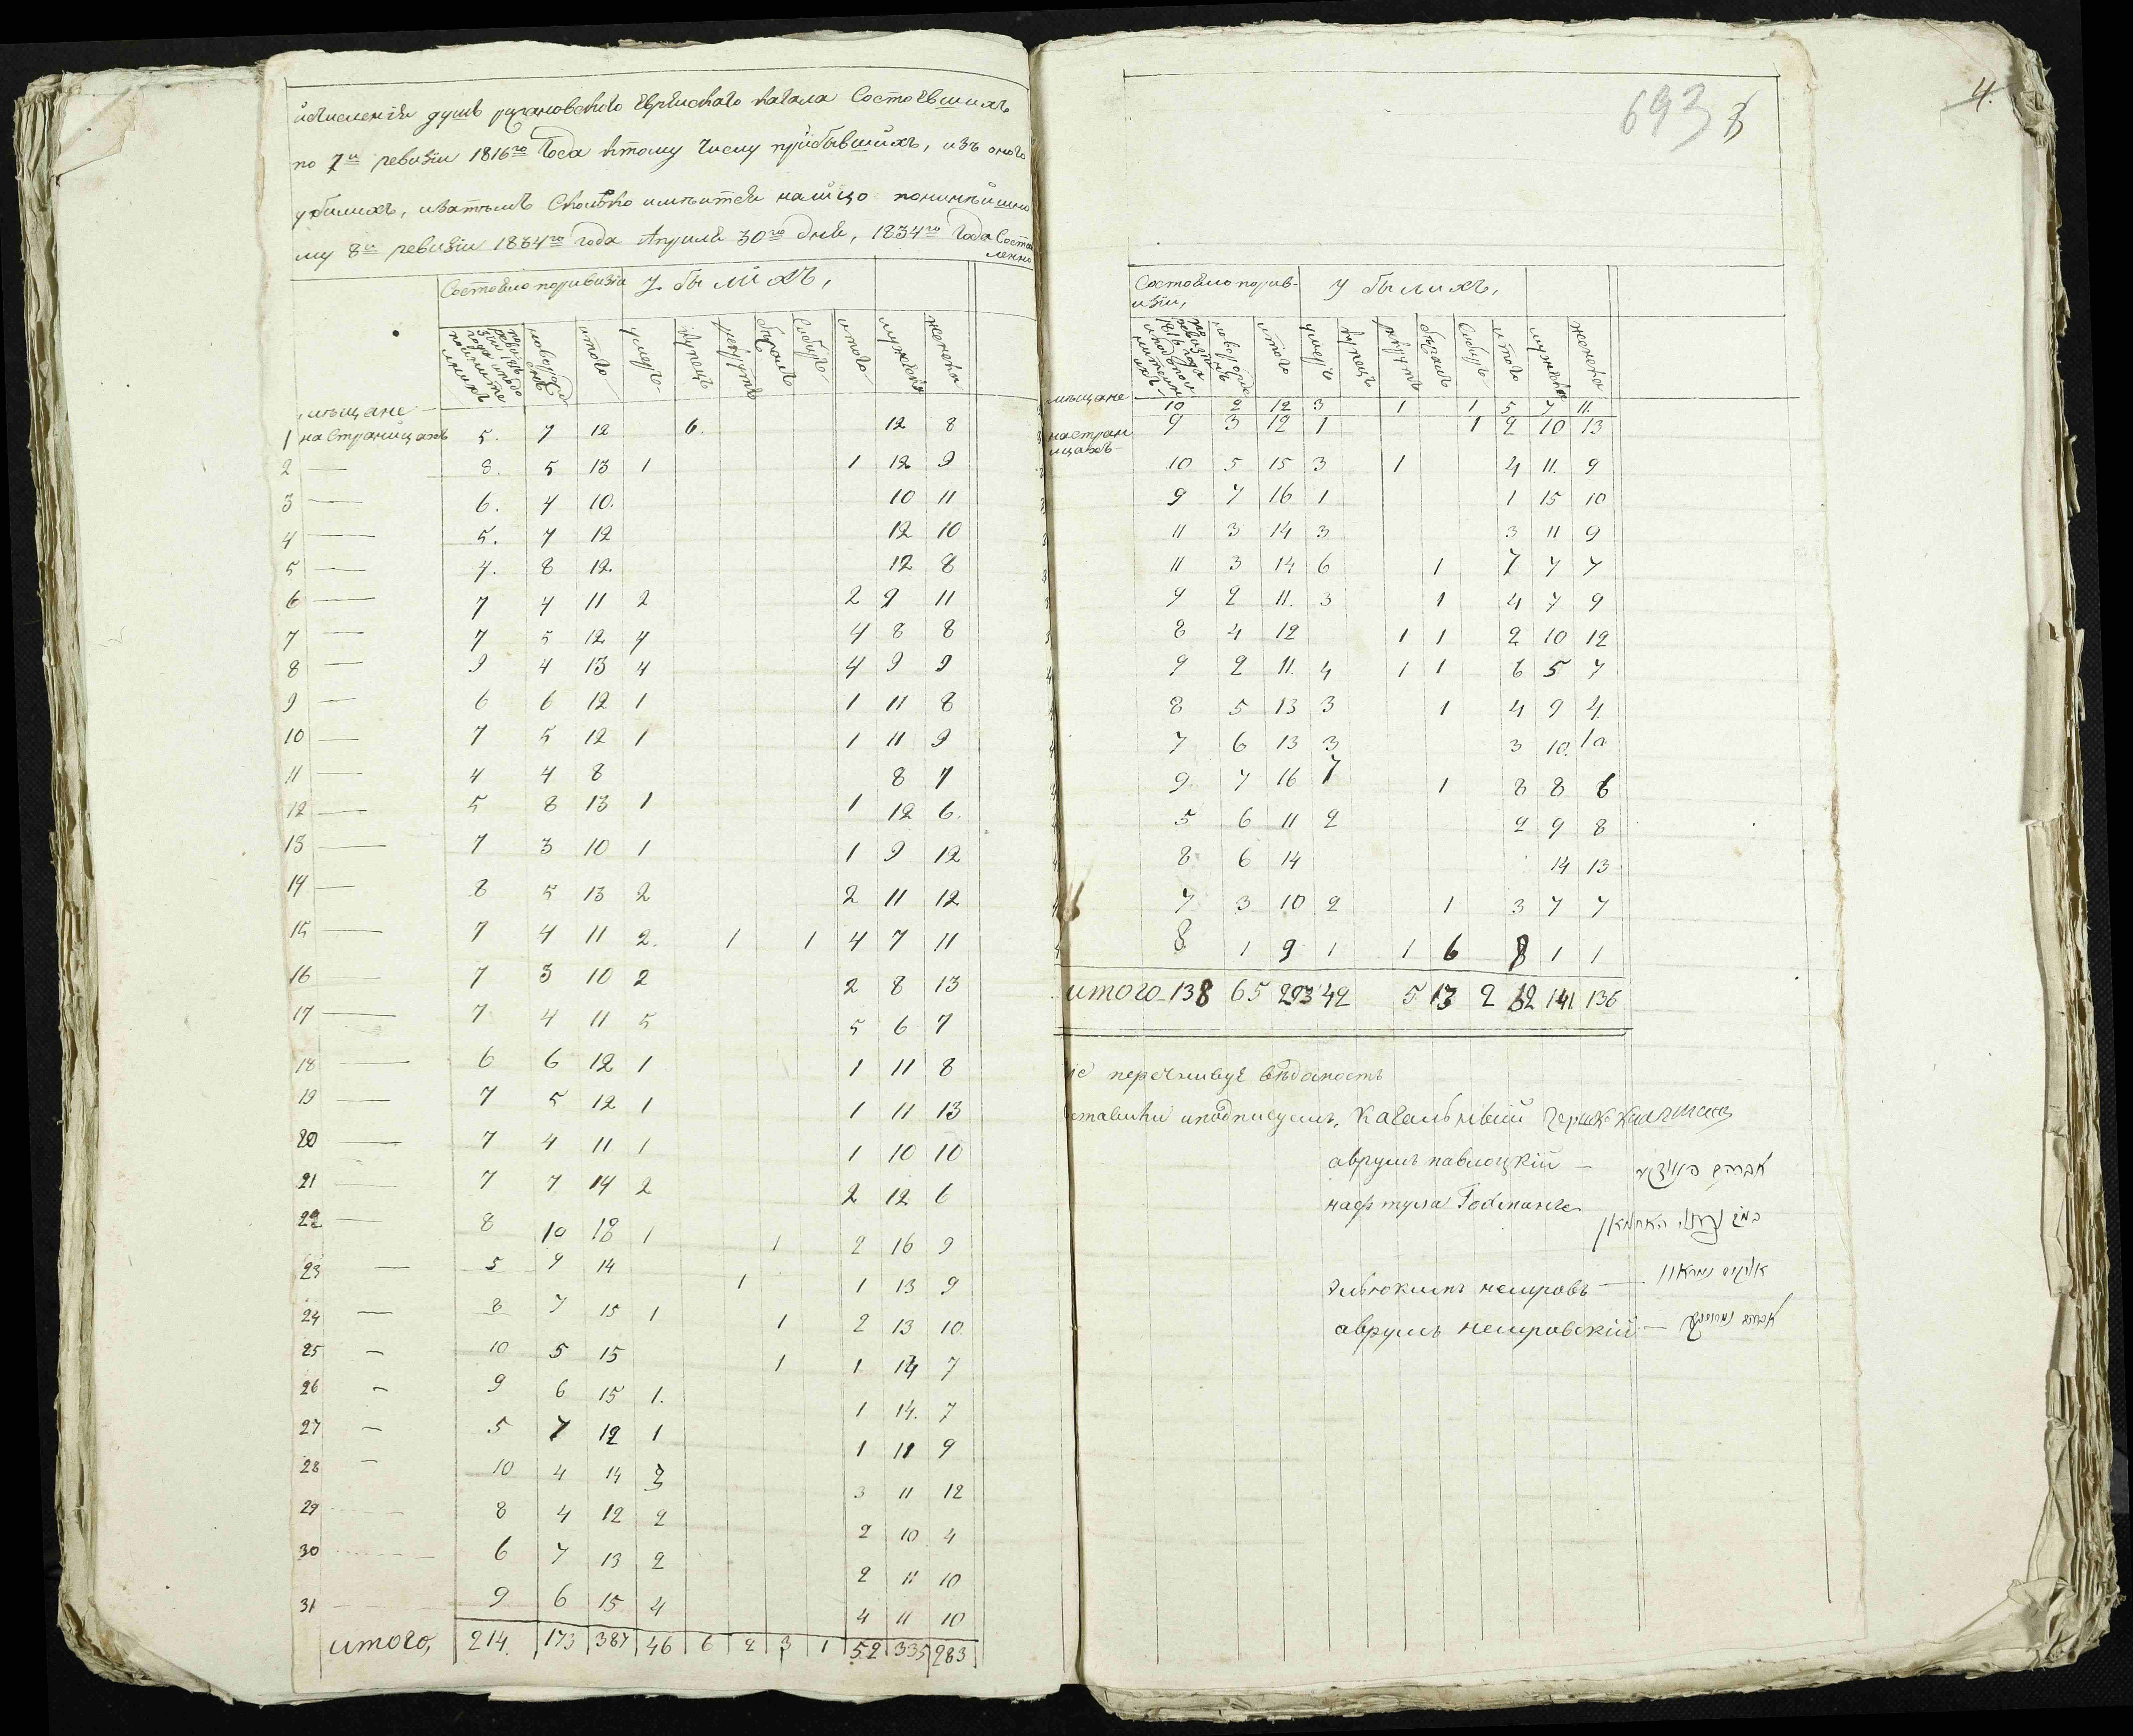 исчисление душъ ружановского Еврейского кагала Состоевшихъ
по 7й ревизiи 1816го Года ктому числу прибывшихъ, изъ оного
убылихъ, изатемъ Сколко имеитсе налицо понинейшно
му 8й ревизiи 1834го года Апреля 30го дня, 1834го Года Соста
ленно
Состояло поривизiи у былихъ,
новорожд итого умеръ купецъ рекрутъ итого мужеска женска
мещане
1 на Страницахъ 5. 7 12 6. 12 8
2 — 8. 5 13 1 1 12 9
3 — 6. 4 10. 10 11
4 — 5. 7 12 12 10
5 — 4. 8 12. 12 8
6 — 7 4 11 2 2 9 11
7 — 7 5 12 4 4 8 8
8 — 9 4 13 4 4 9 9
9 — 6 6 12 1 1 11 8
10 — 7 5 12 1 1 11 9
11 — 4 4 8 8 7
12 — 5 8 13 1 1 12 6.
13 — 7 3 10 1 1 9 12
14 — 8 5 13 2 2 11 12
15 — 7 4 11 2. 1 1 4 7 11
16 — 7 3 10 2 2 8 13
17 — 7 4 11 5 5 6 7
18 — 6 6 12 1 1 11 8
19 — 7 5 12 1 1 11 13
20 — 7 4 11 1 1 10 10
21 — 7 7 14 2 2 12 6
22 — 8 10 18 1 1 2 16 9
23 — 5 9 14 1 1 13 9
24 — 8 7 15 1 1 2 13 10
25 — 10 5 15 1 1 14 7
26 — 9 6 15 1. 1 14. 7
27 — 5 7 12 1 1 11 9
28 — 10 4 14 3 3 11 12
29 — 8 4 12 2 2 10 4
30 — 6 7 13 2 2 11 10
31 — 9 6 15 4 4 11 10
итого, 214. 173 387 46 6 2 3 1 52 335 283
693
4.
Состояло порив-
изiи, у былихъ,
итого умеръ купецъ рекрутъ итого мужеска женска
мещане 10 2 12 3 1 1 5 7 11.
на стран 9 3 12 1 1 2 10 13
ицахъ 10 5 15 3 1 4 11. 9
9 7 16 1 1 15 10
11 3 14 3 3 11 9
11 3 14 6 1 7 7 7
9 2 11. 3 1 4 7 9
8 4 12 1 1 2 10 12
9 2 11. 4 1 1 6 5 7
8 5 13 3 1 4 9 4
7 6 13 3 3 10. 10
9 7 16 7 1 8 8 6
5 6 11 2 2 9 8
8 6 14 14 13
7 3 10 2 1 3 7 7
8 1 9 1 1 6 8 1 1
итого 138 65 203 42 5 13 2 62 141 136
перечневуе ведомость
ставили иподписуемъ, Кагальный
аврумъ павлоцкiй —
нафтула Гохман
немровъ —
аврумъ немровскiй —